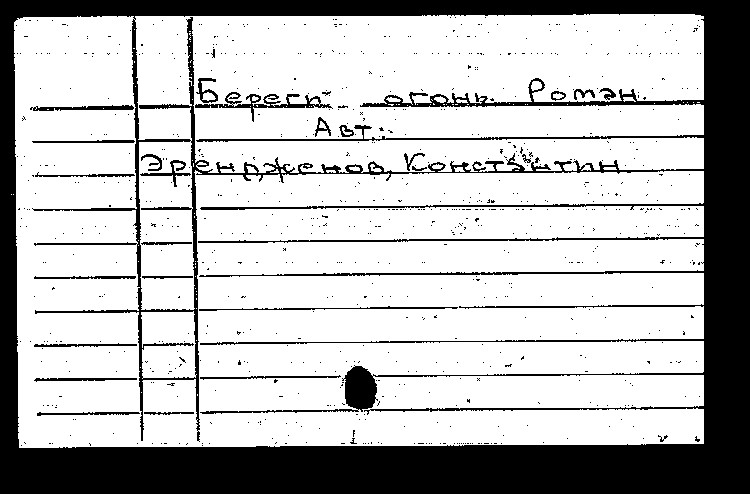 Береги огонь. Роман.
Авт.:
Эрендженов, Константин.